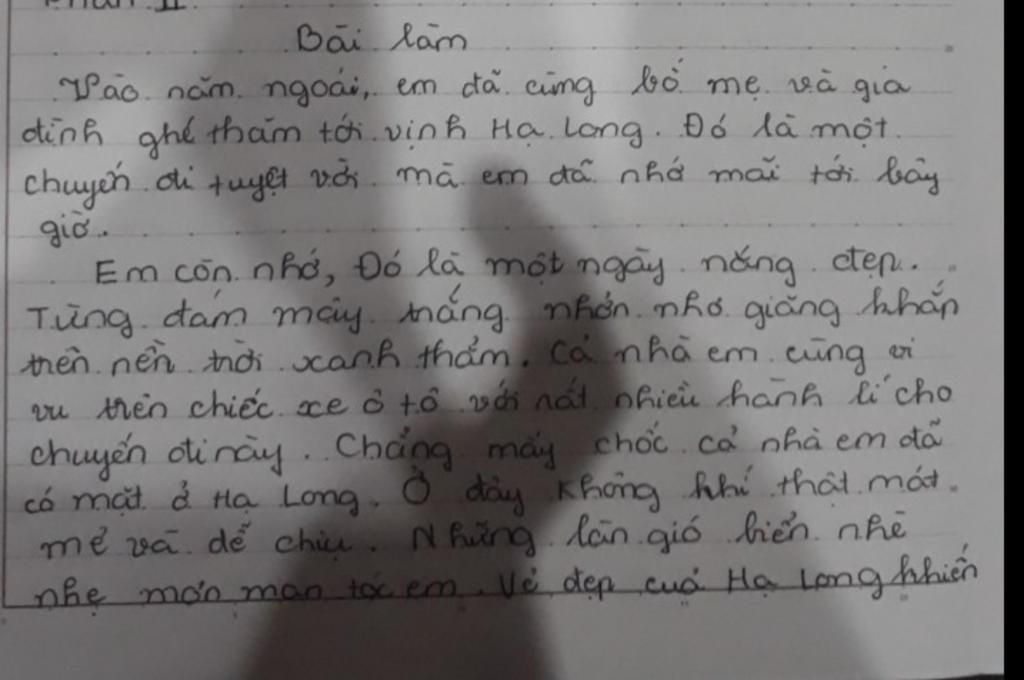 Phần II
Bài làm
Vào năm ngoái, em đã cùng bố mẹ và gia
đình ghé thăm tới vịnh Hạ Long. Đó là một
chuyến đi tuyệt vời mà em đã nhớ mãi tới bây
giờ.
Em còn nhớ, Đó là một ngày nắng đẹp.
Từng đám mây trắng nhởn nhơ giăng khắp
trên nền trời xanh thẳm. Cả nhà em cùng vi
vu trên chiếc xe ô tô với rất nhiều hành lí cho
chuyến đi này. Chẳng mấy chốc cả nhà em đã
có mặt ở Hạ Long. Ở đây không khí thật mát
mẻ và dễ chịu. Những làn gió biển nhè
nhẹ mơn man tóc em. Vẻ đẹp cuả Hạ Long khiến